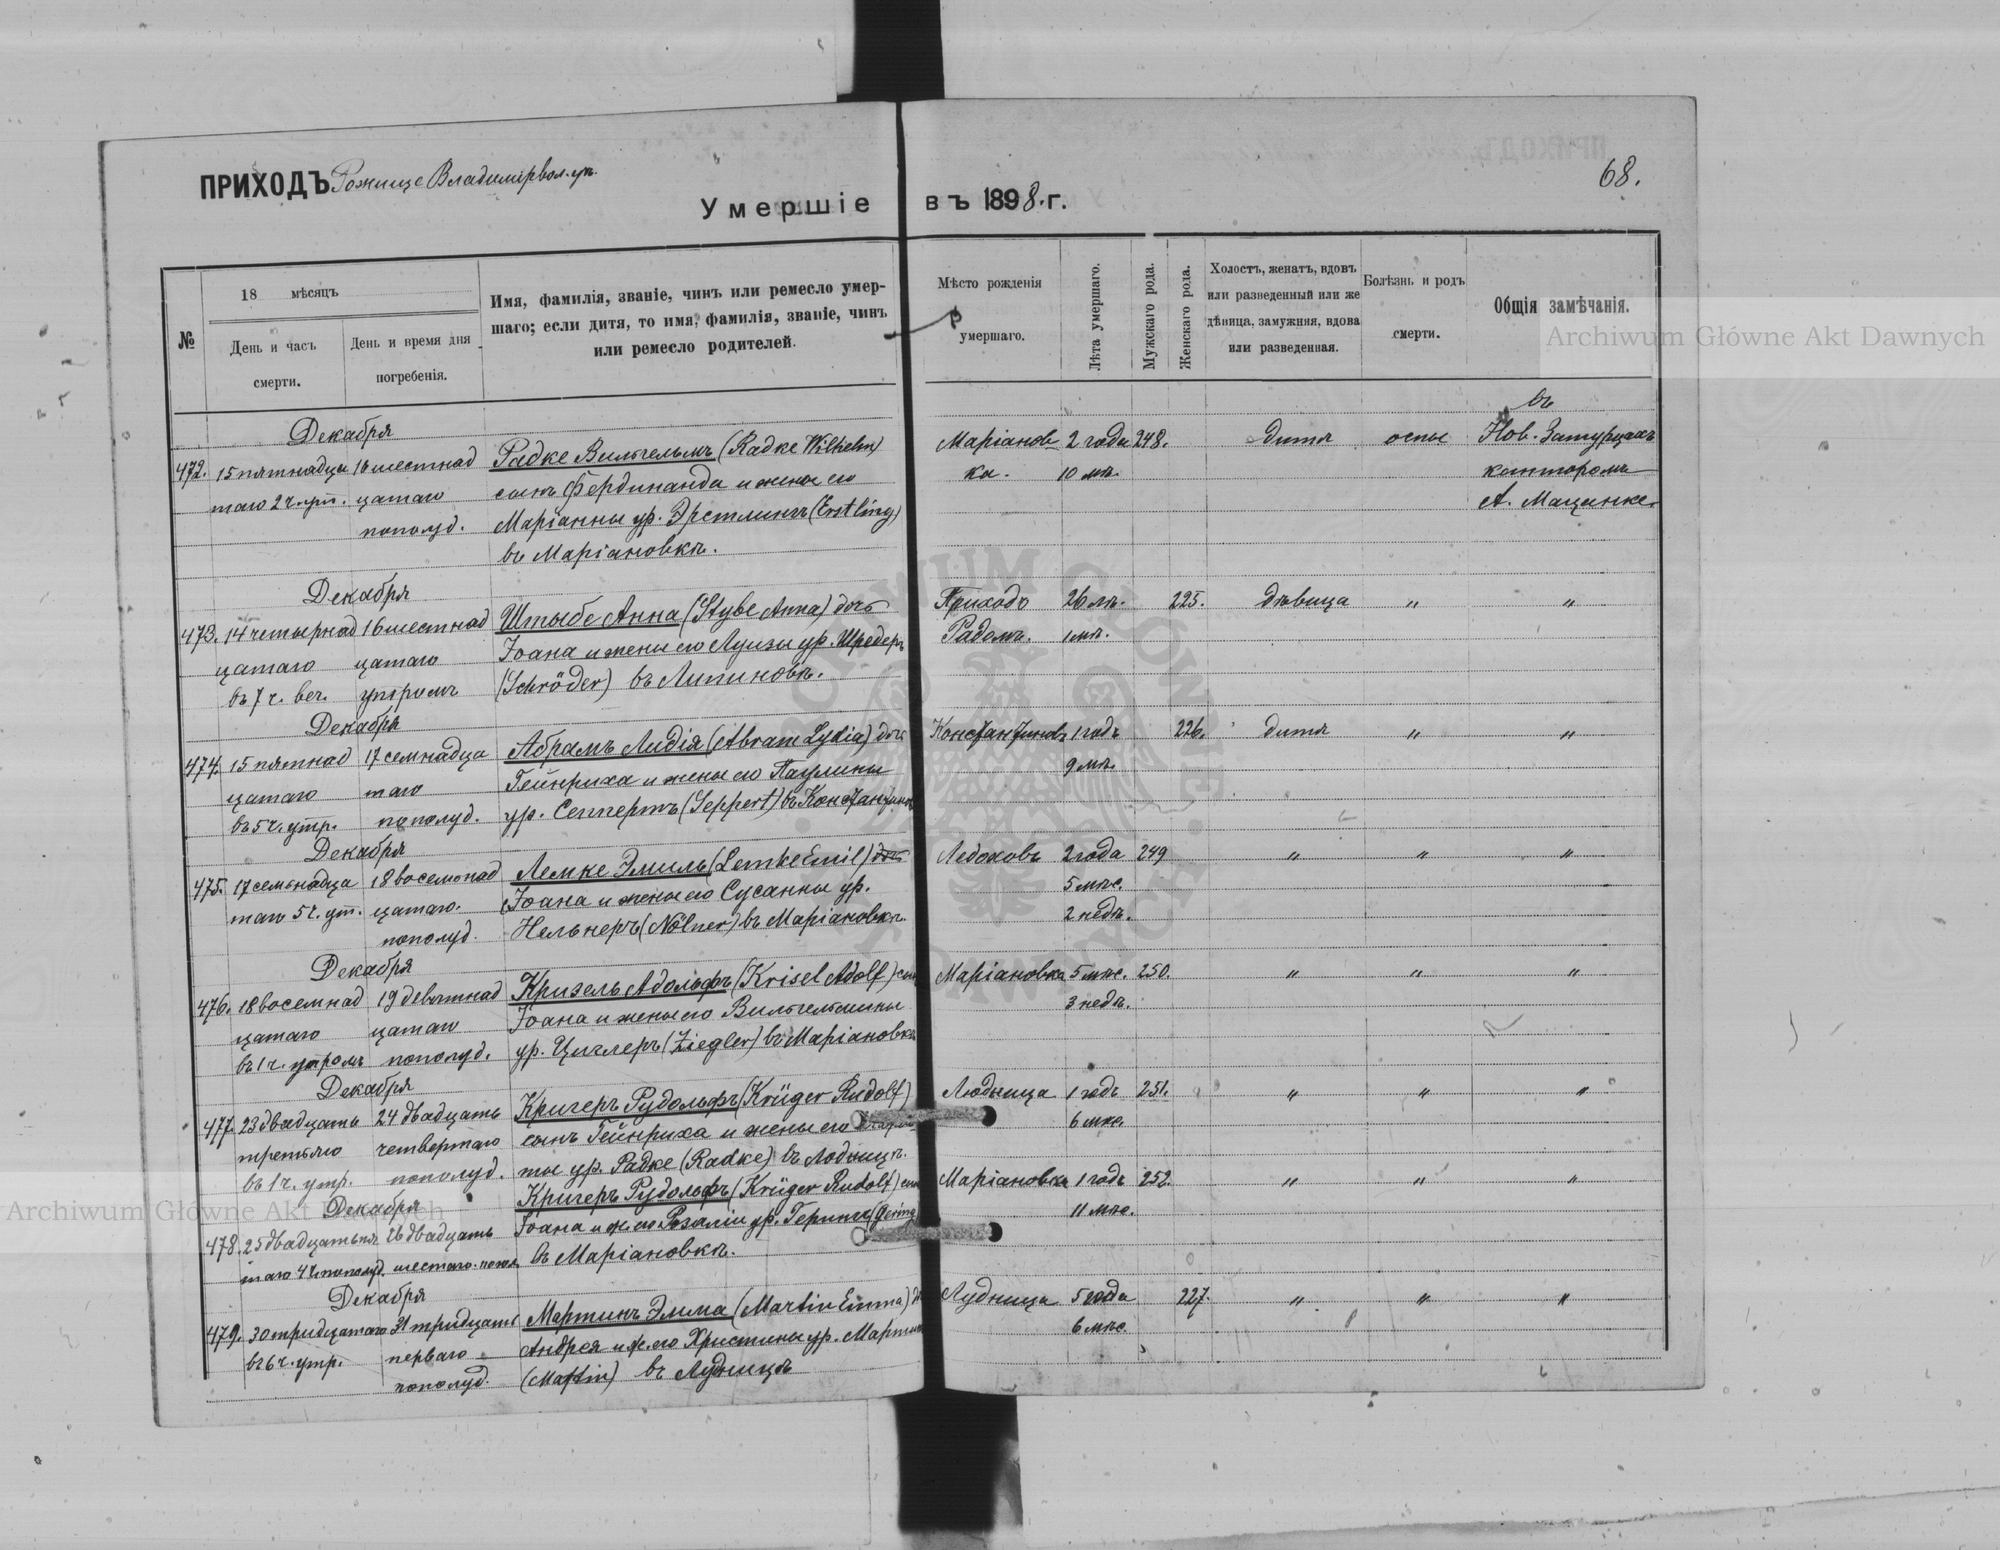 ПРИХОДЪ Рожище Владимірвол. уѣ.
68.
Умершіе въ 1898. г.
№
18 мѣсяцъ
День и часъ смерти.
День и время дня погребенія.
Имя, фамилія, званіе, чинъ или ремесло умер-
шаго; если дитя, то имя, фамилія, званіе, чинъ
или ремесло родителей.
Мѣсто рожденія
умершаго.
Лѣта умершаго.
Мужскаго рода.
Женскаго рода.
Холостъ, женатъ, вдовъ
или разведенный или же
дѣвица, замужняя, вдова
или разведенная.
Болѣзнь и родъ
смерти.
Общія замѣчанія.
Archiwum Główne Akt Dawnych
Декабря
въ
472. 15 пятнадца 16 шестнад Радке Вильгельмъ (Radke Wilhelm) Маріанов 2 года 248. дитя оспы Нов. Затурцахъ
таго 2 ч. ут. цатаго сынъ Фердинанда и жены его ка. 10 мѣ. канторомъ
пополуд. Маріанны ур. Эрстлингъ (Erstling) А. Мацинке.
въ Маріановкѣ.
Декабря
473. 14 четырнад 16 шестнад Штыбе Анна (Stybe Anna) дочь Приходъ 26 лѣ. 225. дѣвица " "
цатаго цатаго Іоана и жены его Луизы ур. Шредеръ Радомъ. 1 мѣ.
въ 7 ч. веч. утромъ (Schröder) въ Липиновкѣ.
Декабря
474. 15 пятнад 17 семнадца Абрамъ Лидія (Abram Lydia) дочь Константиновъ 1 годъ 226. дитя " "
цатаго таго Гейнриха и жены его Паулины 9 мѣ.
въ 5 ч. утр. пополуд. ур. Сеппертъ (Seppert) въ Константинов
Декабря
475. 17 семьнадца 18 восемьнад Лемке Эмиль (Lemke Emil) дочь Ледоховъ 2 года 249 " " "
таго 5 ч. ут. цатаго. Іоана и жены его Сусанны ур. 5 мѣс.
пополуд. Нельнеръ (Nölner) въ Маріановкѣ. 2 недѣ.
Декабря
476. 18 восемнад 19 девятнад Кризель Адольфъ (Krisel Adolf) сынъ Маріановка 5 мѣс. 250. " " "
цатаго цатаго Іоана и жены его Вильгельмины 3 недѣ.
въ 1 ч. утромъ пополуд. ур. Циглеръ (Ziegler) въ Маріановкѣ
Декабря
477. 23 двадцать 24 двадцать Кригеръ Рудольфъ (Krüger Rudolf) Людница 1 годъ 251. " " "
третьяго четвертаго сынъ Гейнриха и жены его 6 мѣс.
въ 1 ч. утр. пополуд. ты ур. Радке (Radke) въ Лодницѣ.
Декабря
Кригеръ Рудольфъ (Krüger Rudolf) сынъ Маріановка 1 годъ 252. " " "
478. 25 двадцатьпя 26 двадцать Іоана и ж. его Розаліи ур. Герингъ (Gering 11 мѣс.
таго 4 ч. пополуд. шестаго. попол. въ Маріановкѣ.
Декабря
479. 30 тридцатаго 31 тридцать Мартинъ Эмма (Martin Emma) Лудница 5 года 227. " " "
въ 6 ч. утр. перваго Андрея и ж. его Христины ур. Мартинъ 6 мѣс.
пополуд. (Martin) въ Лудницѣ
Archiwum Główne Akt Dawnych
ARCHIWUM GŁÓWNE AKT DAWNYCH